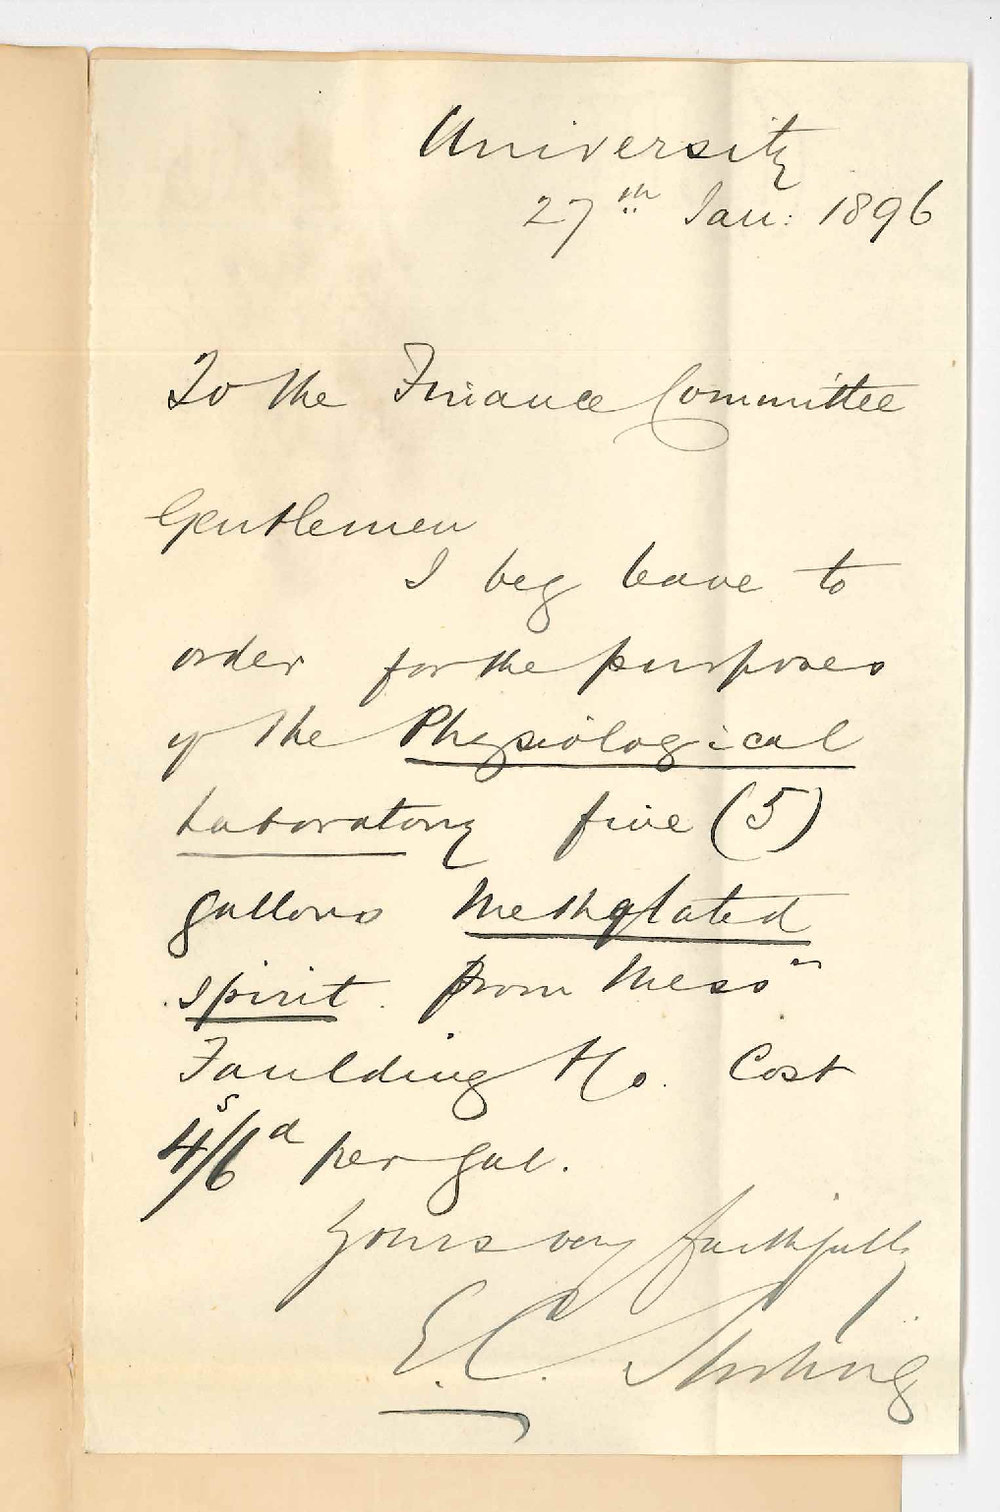 University
27th Jan: 1896
To the Finance Committee
Gentlemen
I beg leave to
order for the purposes
of the Physiological
Laboratory five (5)
gallons Methylated
spirit. from Messrs
Faulding & Co. Cost
4s/6d per gal.
Yours very faithfully
E. C. Stirling